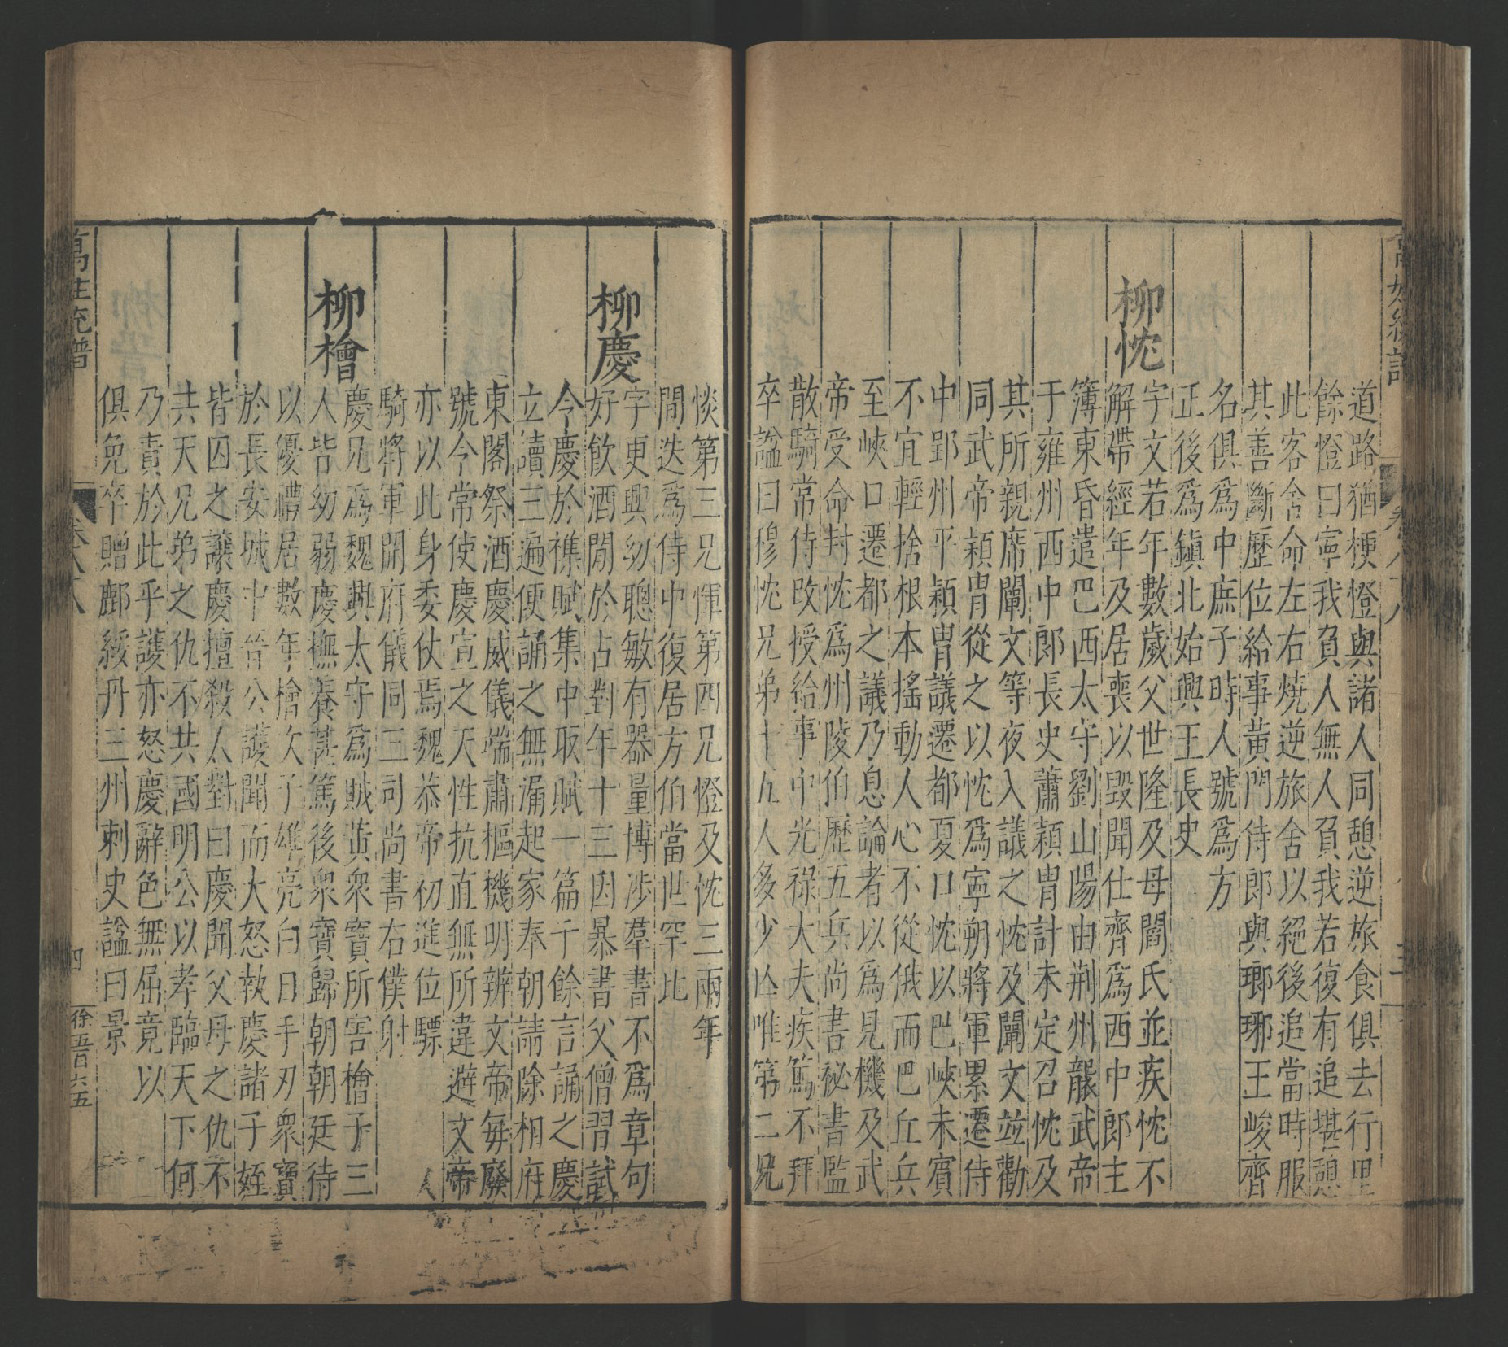 道路猶梗憕與諸人同憩逆旅食俱去行里
餘憕曰寧我負人無人負我若復有追堪憩
此客舍命左右燒逆旅舍以絕後追當時服
其善斷歷位給事黃門侍郎與瑯琊王峻齊
名俱爲中庶子時人號爲方
正後爲鎮北始興王長史
柳忱
字文若年數歲父世隆及母閻氏並疾忱不
解帶經年及居喪以毀聞仕齊爲西中郎主
簿東昏遣巴西太守劉山陽由荊州襲武帝
于雍州西中郎長史蕭穎胄計未定召忱及
其所親席闡文等夜入議之忱及闡文並勸
同武帝穎胄從之以忱爲寧朔將軍累遷侍
中郢州平穎胄議遷都夏口忱以巴峽未賓
不宜輕捨根本搖動人心不從俄而巴丘兵
至峽口遷都之議乃息論者以爲見機及武
帝受命封忱爲州陵伯歷五兵尚書祕書監
散騎常侍改授給事中光祿大夫疾篤不拜
卒謚曰穆忱兄弟十五人多少亾唯第二兄
惔第三兄惲第四兄憕及忱三兩年
間迭爲侍中復居方伯當世罕比
柳慶
字更興幼聰敏有器量博涉羣書不爲章句
好飲酒閒於占對年十三因暴書父僧習試
令慶於襍賦集中取賦一篇千餘言誦之慶
立讀三遍便誦之無漏起家奉朝請除相府
東閣祭酒慶威儀端肅樞機明辨文帝每廢
號令常使慶宣之天性抗直無所違避文帝
亦以此身委仗焉魏恭帝初進位驃
騎將軍開府儀同三司尚書右僕射
柳檜
慶兄爲魏興太守爲賊黃衆寶所害檜子三
人皆幼弱慶撫養甚篤後衆寶歸朝朝廷待
以優禮居數年檜次子雄亮白日手刃衆寶
於長安城中晉公護聞而大怒執慶諸子姪
皆囚之讓慶擅殺人對曰慶聞父母之仇不
共天兄弟之仇不共國明公以孝臨天下何
乃責於此乎護亦怒慶辭色無屈竟以
俱免卒贈鄜綏丹三州刺史謚曰景
萬姓統譜
卷八十八
四
徐晋六五